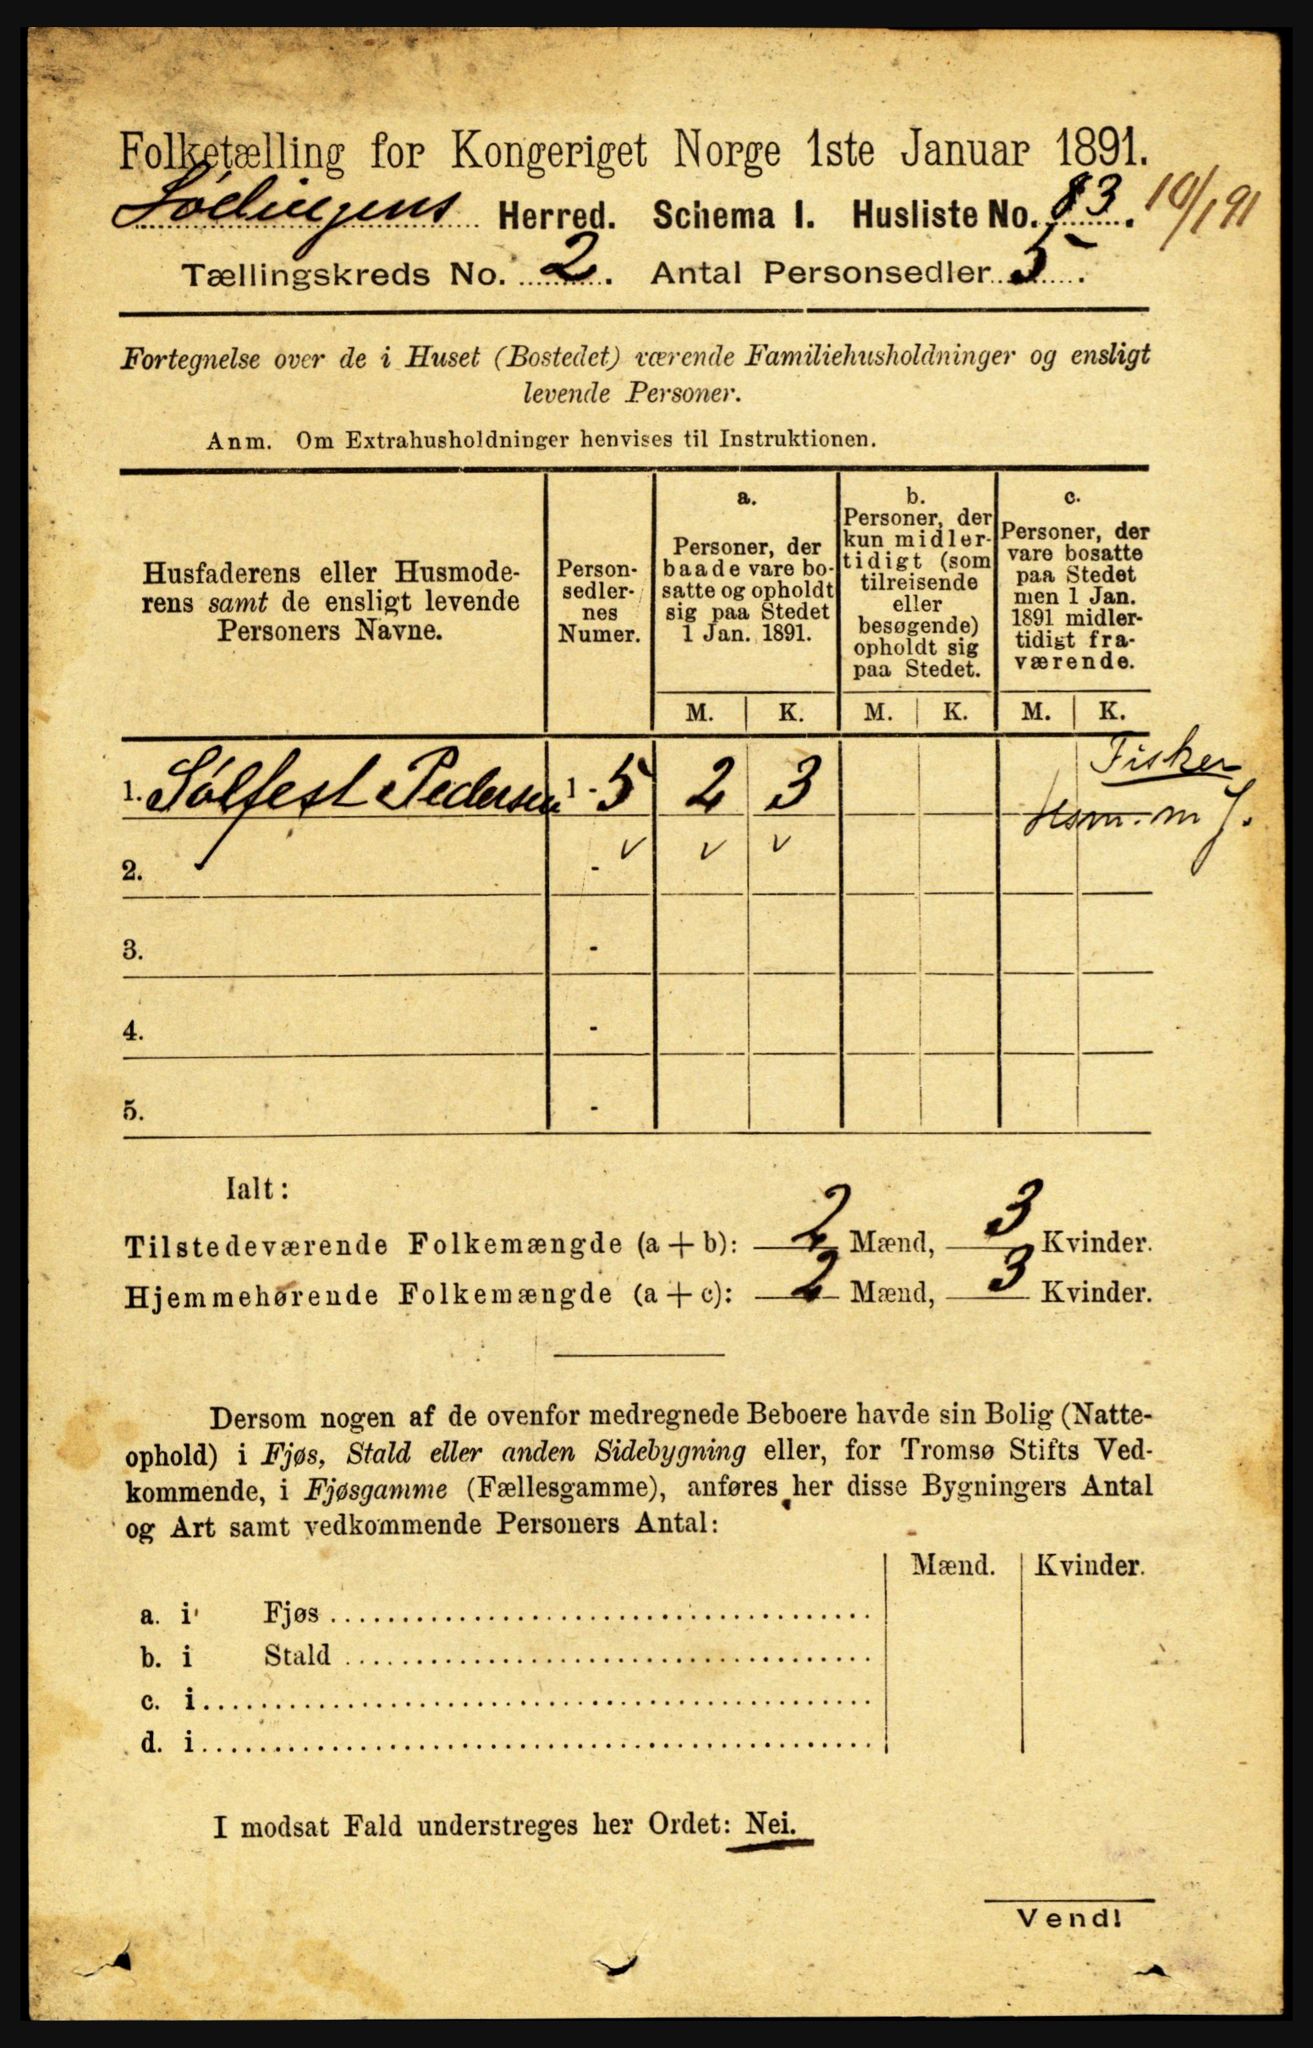 Folketælling for Kongeriget Norge 1ste Januar 1891.
Lødingens Herred. Schema I. Husliste No. 83. 10/1 91
Tællingskreds No. 2. Antal Personsedler 5.
Fortegnelse over de i Huset (Bostedet) værende Familiehusholdninger og ensligt
levende Personer.
Anm. Om Extrahusholdninger henvises til Instruktionen.
Husfaderens eller Husmode-
rens samt de ensligt levende
Personers Navne.
Person-
sedler-
nes
Numer.
a.
Personer, der
baade vare bo-
satte og opholdt
sig paa Stedet
1 Jan. 1891.
b.
Personer, der
kun midler-
tidigt (som
tilreisende
eller
besøgende)
opholdt sig
paa Stedet.
c.
Personer, der
vare bosatte
paa Stedet
men 1 Jan.
1891 midler-
tidigt fra-
værende.
M. K. M. K. M. K.
Fisker
1. Sølfest Pedersen 1 - 5 2 3
Husm. m J.
2. -
3. -
4. -
5. -
Ialt:
Tilstedeværende Folkemængde (a + b): 2 Mænd, 3 Kvinder.
Hjemmehørende Folkemængde (a + c): 2 Mænd, 3 Kvinder.
Dersom nogen af de ovenfor medregnede Beboere havde sin Bolig (Natte-
ophold) i Fjøs, Stald eller anden Sidebygning eller, for Tromsø Stifts Ved-
kommende, i Fjøsgamme (Fællesgamme), anføres her disse Bygningers Antal
og Art samt vedkommende Personers Antal:
Mænd. Kvinder.
a. i Fjøs
b. i Stald
c. i
d. i
I modsat Fald understreges her Ordet: Nei.
Vend!